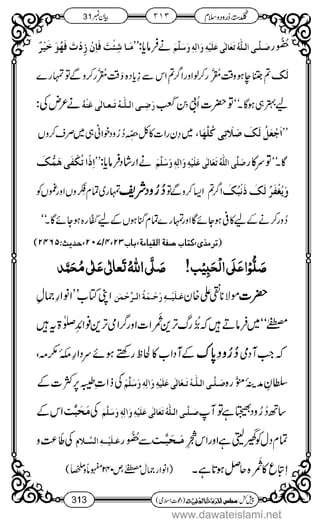 بیان نمبر 31
۳۱۳
گلدستۂ درود و سلام
حُضُور صَلَّی اللہُ تَعَالٰی عَلَیْہِ وَاٰلِہٖ وَسَلَّم نے فرمایا: ’’مَا شِئْتَ فَاِنْ زِدْتَّ فَھُوَ خَیْرٌ
لَّکَ تم جتنا چاہو وقت مُقرَّر کرلو اور اگر تم اس سے زیادہ وقت مُقرَّر کروگے تو تمہارے
لیے بہتر ہی ہوگا۔‘‘ تو حضرتِ اُبَی بِن کَعب رَضِیَ اللہُ تَعَالٰی عَنْہُ نے عرض کی:
’’اَجْعَلُ لَکَ صَلَاتِیْ کُلَّھَا، میں دن رات کا کُل حِصّہ دُرُود خوانی ہی میں صرف کروں
گا۔‘‘ تو سرکار صَلَّی اللہُ تَعَالٰی عَلَیْہِ وَاٰلِہٖ وَسَلَّم نے ارشاد فرمایا: ’’اِذًا تُکْفٰی ھَمَّکَ
وَیُغْفَرُ لَکَ ذَنْبُکَ اگر تم ایسا کروگے تو دُرُود شریف تمہاری تمام فکروں اور غموں کو
دُور کرنے کے لیے کافی ہو جائے گا اور تمہارے تمام گناہوں کے لیے کفّارہ ہو جائے گا۔‘‘
(ترمذی،کتاب صفة القیامة،باب۲۳، ۴/ ۲۰۷، حدیث: ۲۴۶۵)
صَلُّوْا عَلَی الْحَبِیْب! صَلَّی اللّٰہُ تَعَالٰی عَلٰی مُحَمَّد
حضرت مولانا نقی علی خان عَلَیْہِ رَحْمَۃُ الرَّحْمٰن اپنی کتاب ’’انوارِ جمالِ
مصطفٰے‘‘ میں فرماتے ہیں کہ بُزُرگ ترین ثَمَرات اور گرامی ترین فوائدِ صلٰوۃ میں یہ ہیں
کہ جب آدمی دُرُودِ پاک کے آداب کا لحاظ رکھتے ہوئے سردارِ مکۂ مکرمہ،
سلطانِ مدینۂ منوّرہ صَلَّی اللہُ تَعَالٰی عَلَیْہِ وَاٰلِہٖ وَسَلَّم کی ذاتِ طیبہ پر کثرت کے
ساتھ دُرُود بھیجتا ہے تو آپ صَلَّی اللہُ تَعَالٰی عَلَیْہِ وَاٰلِہٖ وَسَلَّم کی مَحَبَّت اس کے
تمام دل کو گھیر لیتی ہے اور اس شجرِ مَحَبَّت سے حُضُور عَلَیْہِ السَّلَام کی طاعت و
اتباع کا ثَمَرہ حاصل ہوتا ہے۔ (انوارِ جمال مصطفٰے، ص۲۴۰ مفہوماً و ملخصاً)
313
www.dawateislami.net